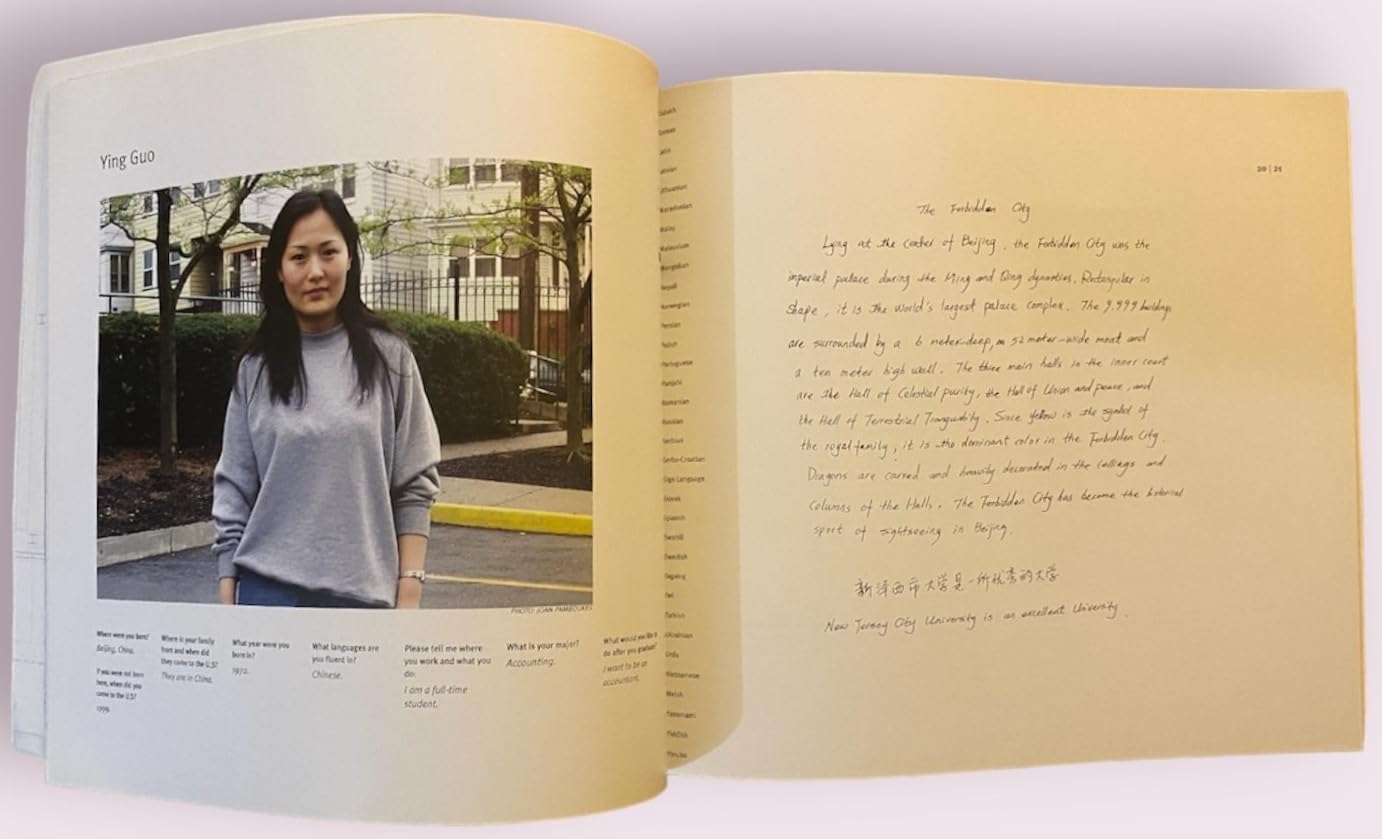 Ying Guo
PHOTO: JOAN PAMBOUKES
Where were you born?
Beijing, China.
If you were not born
here, when did you
come to the U.S?
Where is your family
from and when did
they come to the U.S?
They are in China.
What year were you
born in?
1972.
What languages are
you fluent in?
Chinese.
Please tell me where
you work and what you
do:
I am a full-time
student.
What is your major?
Accounting.
What would you like to
do after you graduate?
I want to be an
accountant.
Latin
Lithuanian
Macedonian
Malay
Malayalam
Mongolian
Nepali
Norwegian
Persian
Polish
Portuguese
Punjabi
Romanian
Russian
Serbian
Serbo-Croatian
Sign Language
Slovak
Spanish
Swahili
Swedish
Tagalog
Twi
Turkish
Ukrainian
Urdu
Vietnamese
Welsh
Yiddish
20 | 21
The Forbidden City
Lying at the center of Beijing, the Forbidden City was the
imperial palace during the Ming and Qing dynasties. Rectangular in
Shape, it is the world's largest palace complex. The 9,999 buildings
are surrounded by a 6 meter-deep, 52 meter-wide moat and
a ten meter high wall. The three main halls in the inner court
are the Hall of Celestial purity, the Hall of Union and peace, and
the Hall of Terrestrial Tranquility. Since yellow is the symbol of
the royal family, it is the dominant color in the Forbidden City.
Dragons are carved and heavily decorated in the ceilings and
Columns of the Halls. The Forbidden City has become the historical
sport of sightseeing in Beijing.
新泽西市大学是一所优秀的大学
New Jersey City University is an excellent University.